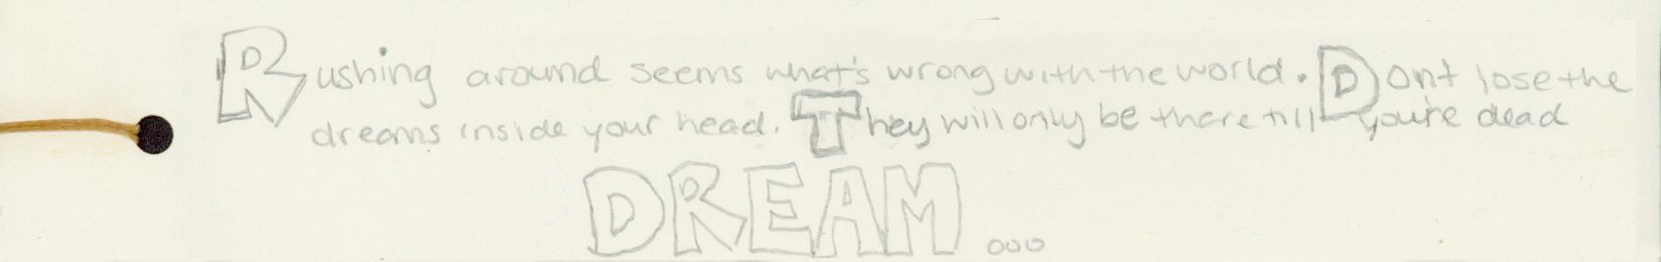 Rushing around seems what's wrong with the world. Don't lose the
dreams inside your head. They will only be there till you're dead
DREAM...